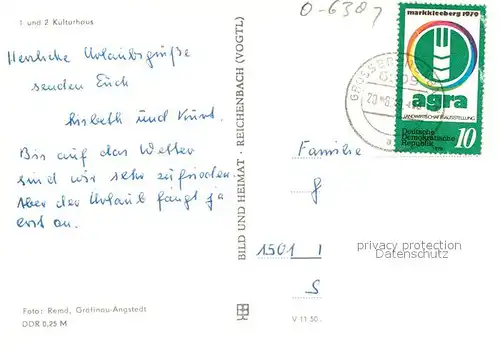 1 und 2 Kulturhaus
0-6387
Herzliche Urlaubsgrüße
senden Euch
Lisbeth und Kurt.
Bis auf das Wetter
sind wir sehr zufrieden.
Aber der Urlaub fängt ja
erst an.
Foto: Remd, Gräfinau-Angstedt
DDR 0,25 M
BILD UND HEIMAT - REICHENBACH (VOGTL)
markkleeberg 1979
agra
LANDWIRTSCHAFTSAUSSTELLUNG
Deutsche
Demokratische
Republik
10
Familie
1501
S
privacy protection
Datenschutz
V 11 50